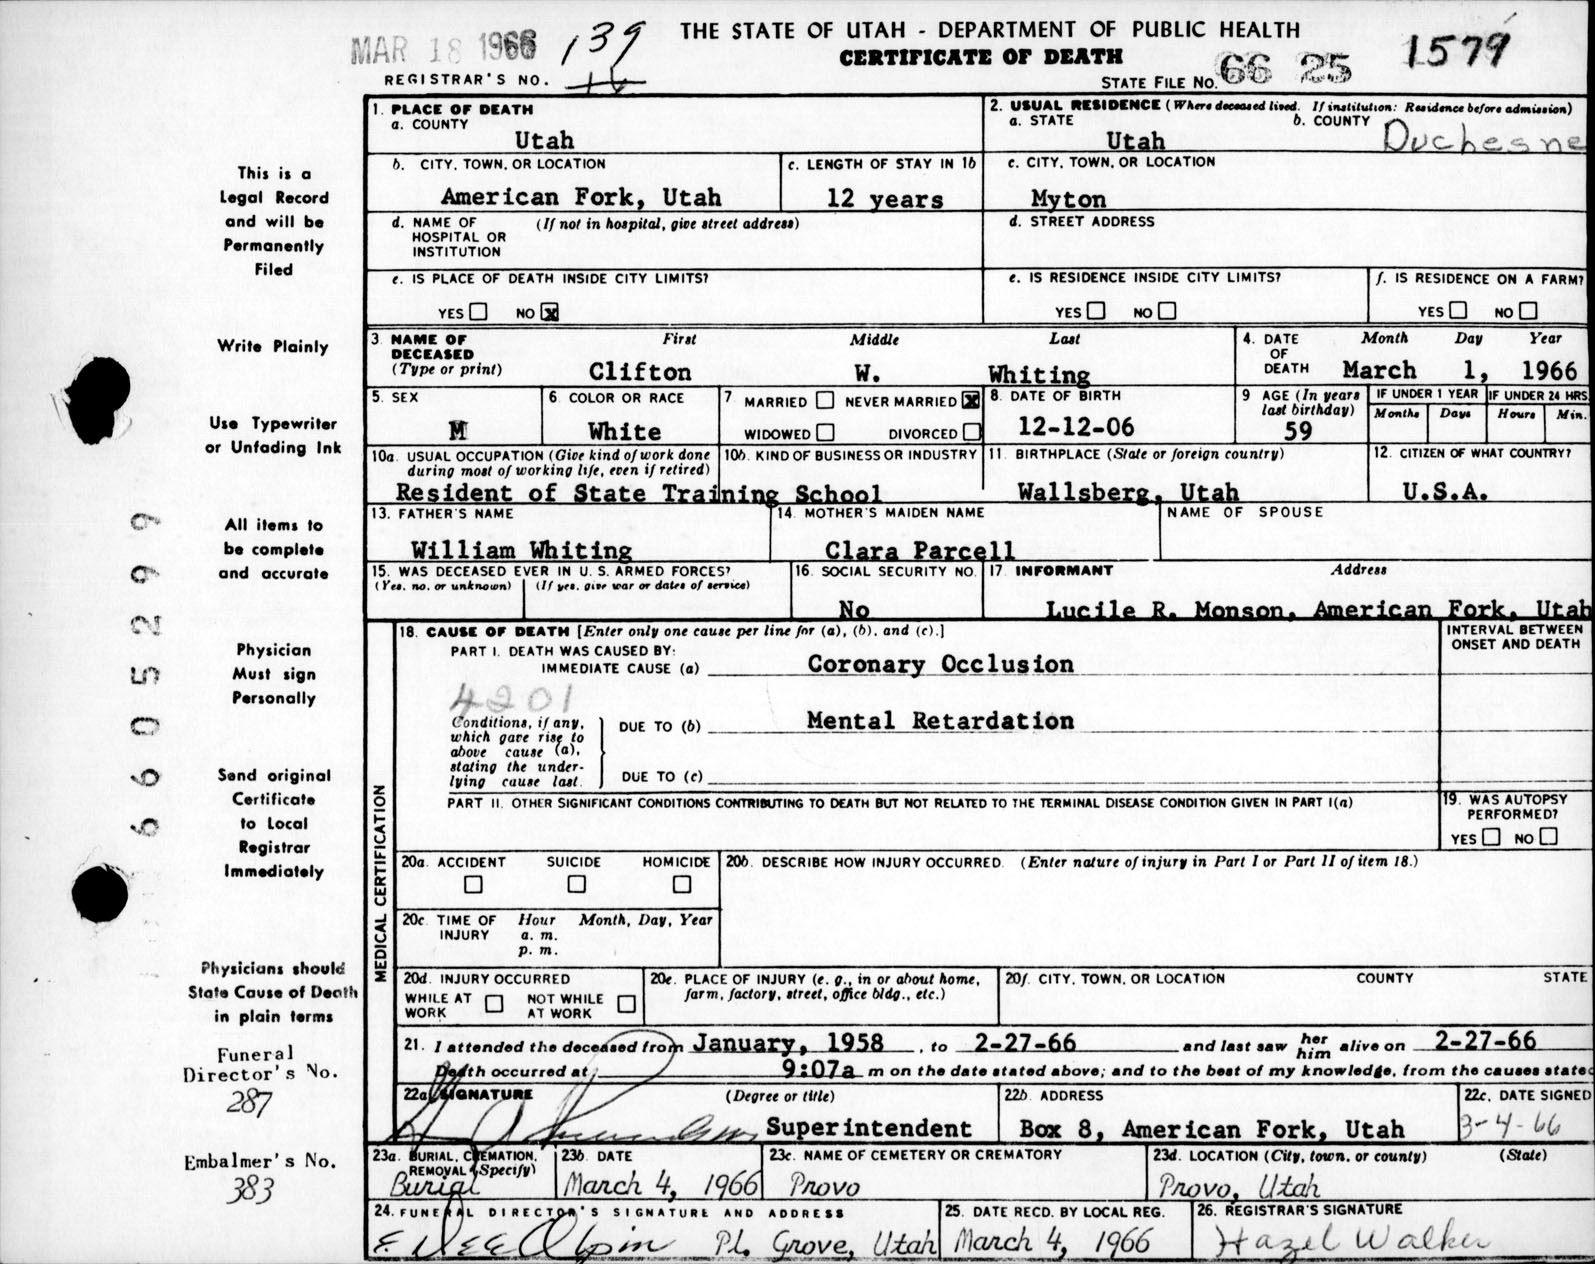 MAR 18 1966
139
THE STATE OF UTAH - DEPARTMENT OF PUBLIC HEALTH
CERTIFICATE OF DEATH
REGISTRAR'S NO. 16
STATE FILE NO. 66 25 1579
1. PLACE OF DEATH
a. COUNTY
Utah
2. USUAL RESIDENCE (Where deceased lived. If institution: Residence before admission)
a. STATE b. COUNTY
Utah Duchesne
b. CITY, TOWN, OR LOCATION
American Fork, Utah
c. LENGTH OF STAY IN 1b
12 years
c. CITY, TOWN, OR LOCATION
Myton
d. NAME OF (If not in hospital, give street address)
HOSPITAL OR
INSTITUTION
d. STREET ADDRESS
e. IS PLACE OF DEATH INSIDE CITY LIMITS?
YES NO X
e. IS RESIDENCE INSIDE CITY LIMITS?
YES NO
f. IS RESIDENCE ON A FARM?
YES NO
3. NAME OF DECEASED
(Type or print)
First Middle Last
Clifton W. Whiting
4. DATE OF DEATH
Month Day Year
March 1, 1966
5. SEX
M
6. COLOR OR RACE
White
7. MARRIED NEVER MARRIED X
WIDOWED DIVORCED
8. DATE OF BIRTH
12-12-06
9. AGE (In years last birthday)
59
IF UNDER 1 YEAR
Months Days
IF UNDER 24 HRS.
Hours Min.
10a. USUAL OCCUPATION (Give kind of work done
during most of working life, even if retired)
10b. KIND OF BUSINESS OR INDUSTRY
Resident of State Training School
11. BIRTHPLACE (State or foreign country)
Wallsberg, Utah
12. CITIZEN OF WHAT COUNTRY?
U.S.A.
13. FATHER'S NAME
William Whiting
14. MOTHER'S MAIDEN NAME
Clara Parcell
NAME OF SPOUSE
15. WAS DECEASED EVER IN U. S. ARMED FORCES?
(Yes, no, or unknown) (If yes, give war or dates of service)
16. SOCIAL SECURITY NO.
No
17. INFORMANT Address
Lucile R. Monson, American Fork, Utah
MEDICAL CERTIFICATION
18. CAUSE OF DEATH [Enter only one cause per line for (a), (b), and (c).]
INTERVAL BETWEEN
ONSET AND DEATH
PART I. DEATH WAS CAUSED BY:
IMMEDIATE CAUSE (a) Coronary Occlusion
4201
Conditions, if any,
which gave rise to
above cause (a),
stating the under-
lying cause last.
DUE TO (b) Mental Retardation
DUE TO (c)
PART II. OTHER SIGNIFICANT CONDITIONS CONTRIBUTING TO DEATH BUT NOT RELATED TO THE TERMINAL DISEASE CONDITION GIVEN IN PART I(a)
19. WAS AUTOPSY
PERFORMED?
YES NO
20a. ACCIDENT SUICIDE HOMICIDE
20b. DESCRIBE HOW INJURY OCCURRED. (Enter nature of injury in Part I or Part II of item 18.)
20c. TIME OF INJURY
Hour Month, Day, Year
a. m.
p. m.
20d. INJURY OCCURRED
WHILE AT WORK NOT WHILE AT WORK
20e. PLACE OF INJURY (e. g., in or about home,
farm, factory, street, office bldg., etc.)
20f. CITY, TOWN, OR LOCATION COUNTY STATE
21. I attended the deceased from January, 1958, to 2-27-66 and last saw her him alive on 2-27-66
Death occurred at 9:07a m on the date stated above; and to the best of my knowledge, from the causes stated
22a. SIGNATURE (Degree or title)
Superintendent
22b. ADDRESS
Box 8, American Fork, Utah
22c. DATE SIGNED
3-4-66
23a. BURIAL, CREMATION,
REMOVAL (Specify)
Burial
23b. DATE
March 4, 1966
23c. NAME OF CEMETERY OR CREMATORY
Provo
23d. LOCATION (City, town, or county) (State)
Provo, Utah
24. FUNERAL DIRECTOR'S SIGNATURE AND ADDRESS
E. Dee Pl. Grove, Utah
25. DATE RECD. BY LOCAL REG.
March 4, 1966
26. REGISTRAR'S SIGNATURE
Hazel Walker
This is a
Legal Record
and will be
Permanently
Filed
Write Plainly
Use Typewriter
or Unfading Ink
All items to
be complete
and accurate
Physician
Must sign
Personally
Send original
Certificate
to Local
Registrar
Immediately
Physicians should
State Cause of Death
in plain terms
Funeral
Director's No.
287
Embalmer's No.
383
6605299